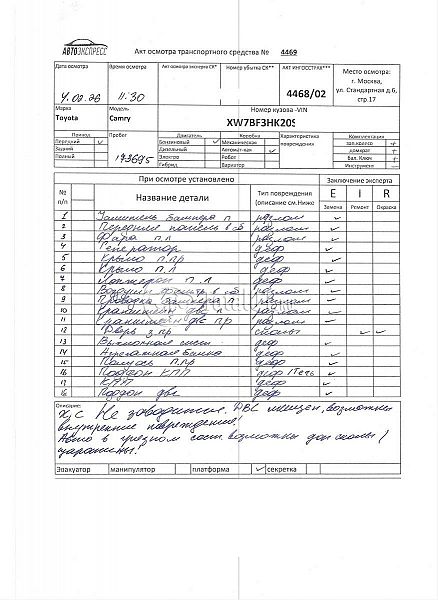 АВТОЭКСПРЕСС
Акт осмотра транспортного средства № 4469
Дата осмотра
Время осмотра
Акт осмотра эксперта СК*
Номер убытка СК**
АКТ ИНГОССТРАХ***
Место осмотра:
г. Москва,
ул. Стандартная д.6,
стр.17
11:30
4468/02
Марка
Модель
Номер кузова -VIN
Toyota
Camry
XW7BF3HK20S
Привод
Пробег
Двигатель
Коробка
Характеристика повреждений
Комплектация
Передний ✓
Бензиновый ✓
Механическая
зап.колесо +
Задний
Дизельный
Автомат-кая ✓
домкрат +
Полный
173695
Электро
Робот
Бал. Ключ +
Гибрид
Вариатор
Инструмент —
При осмотре установлено
Заключение эксперта
№ п/п
Название детали
Тип повреждения (описание см.Ниже
E I R
Замена Ремонт Окраска
1 бампера п разлом ✓
2 Передняя панель в сб разлом ✓
3 Фара п л разлом ✓
4 Генератор деф ✓
5 Крыло п.пр деф ✓
6 Крыло п.л деф ✓
7 Лонжерон п.л деф ✓
8 фильтр в сб разлом ✓
9 Проводка бампера п разлом ✓
10 двс л разлом ✓
11 двс пр разлом ✓
12 Дверь з.пр сколы ✓ ✓
13 Выхлопная сист деф ✓
14 балка деф ✓
15 Полуось п.пр деф ✓
16 Поддон КПП деф Течь ✓
17 КПП деф ✓
18 Поддон двс деф ✓
Описание:
Х/С Не заводится. ДВС смещен, возможны
внутренние повреждения!
Авто в грязном сост. возможны доп сколы/
царапины!
Эвакуатор
манипулятор
платформа
✓ секретка